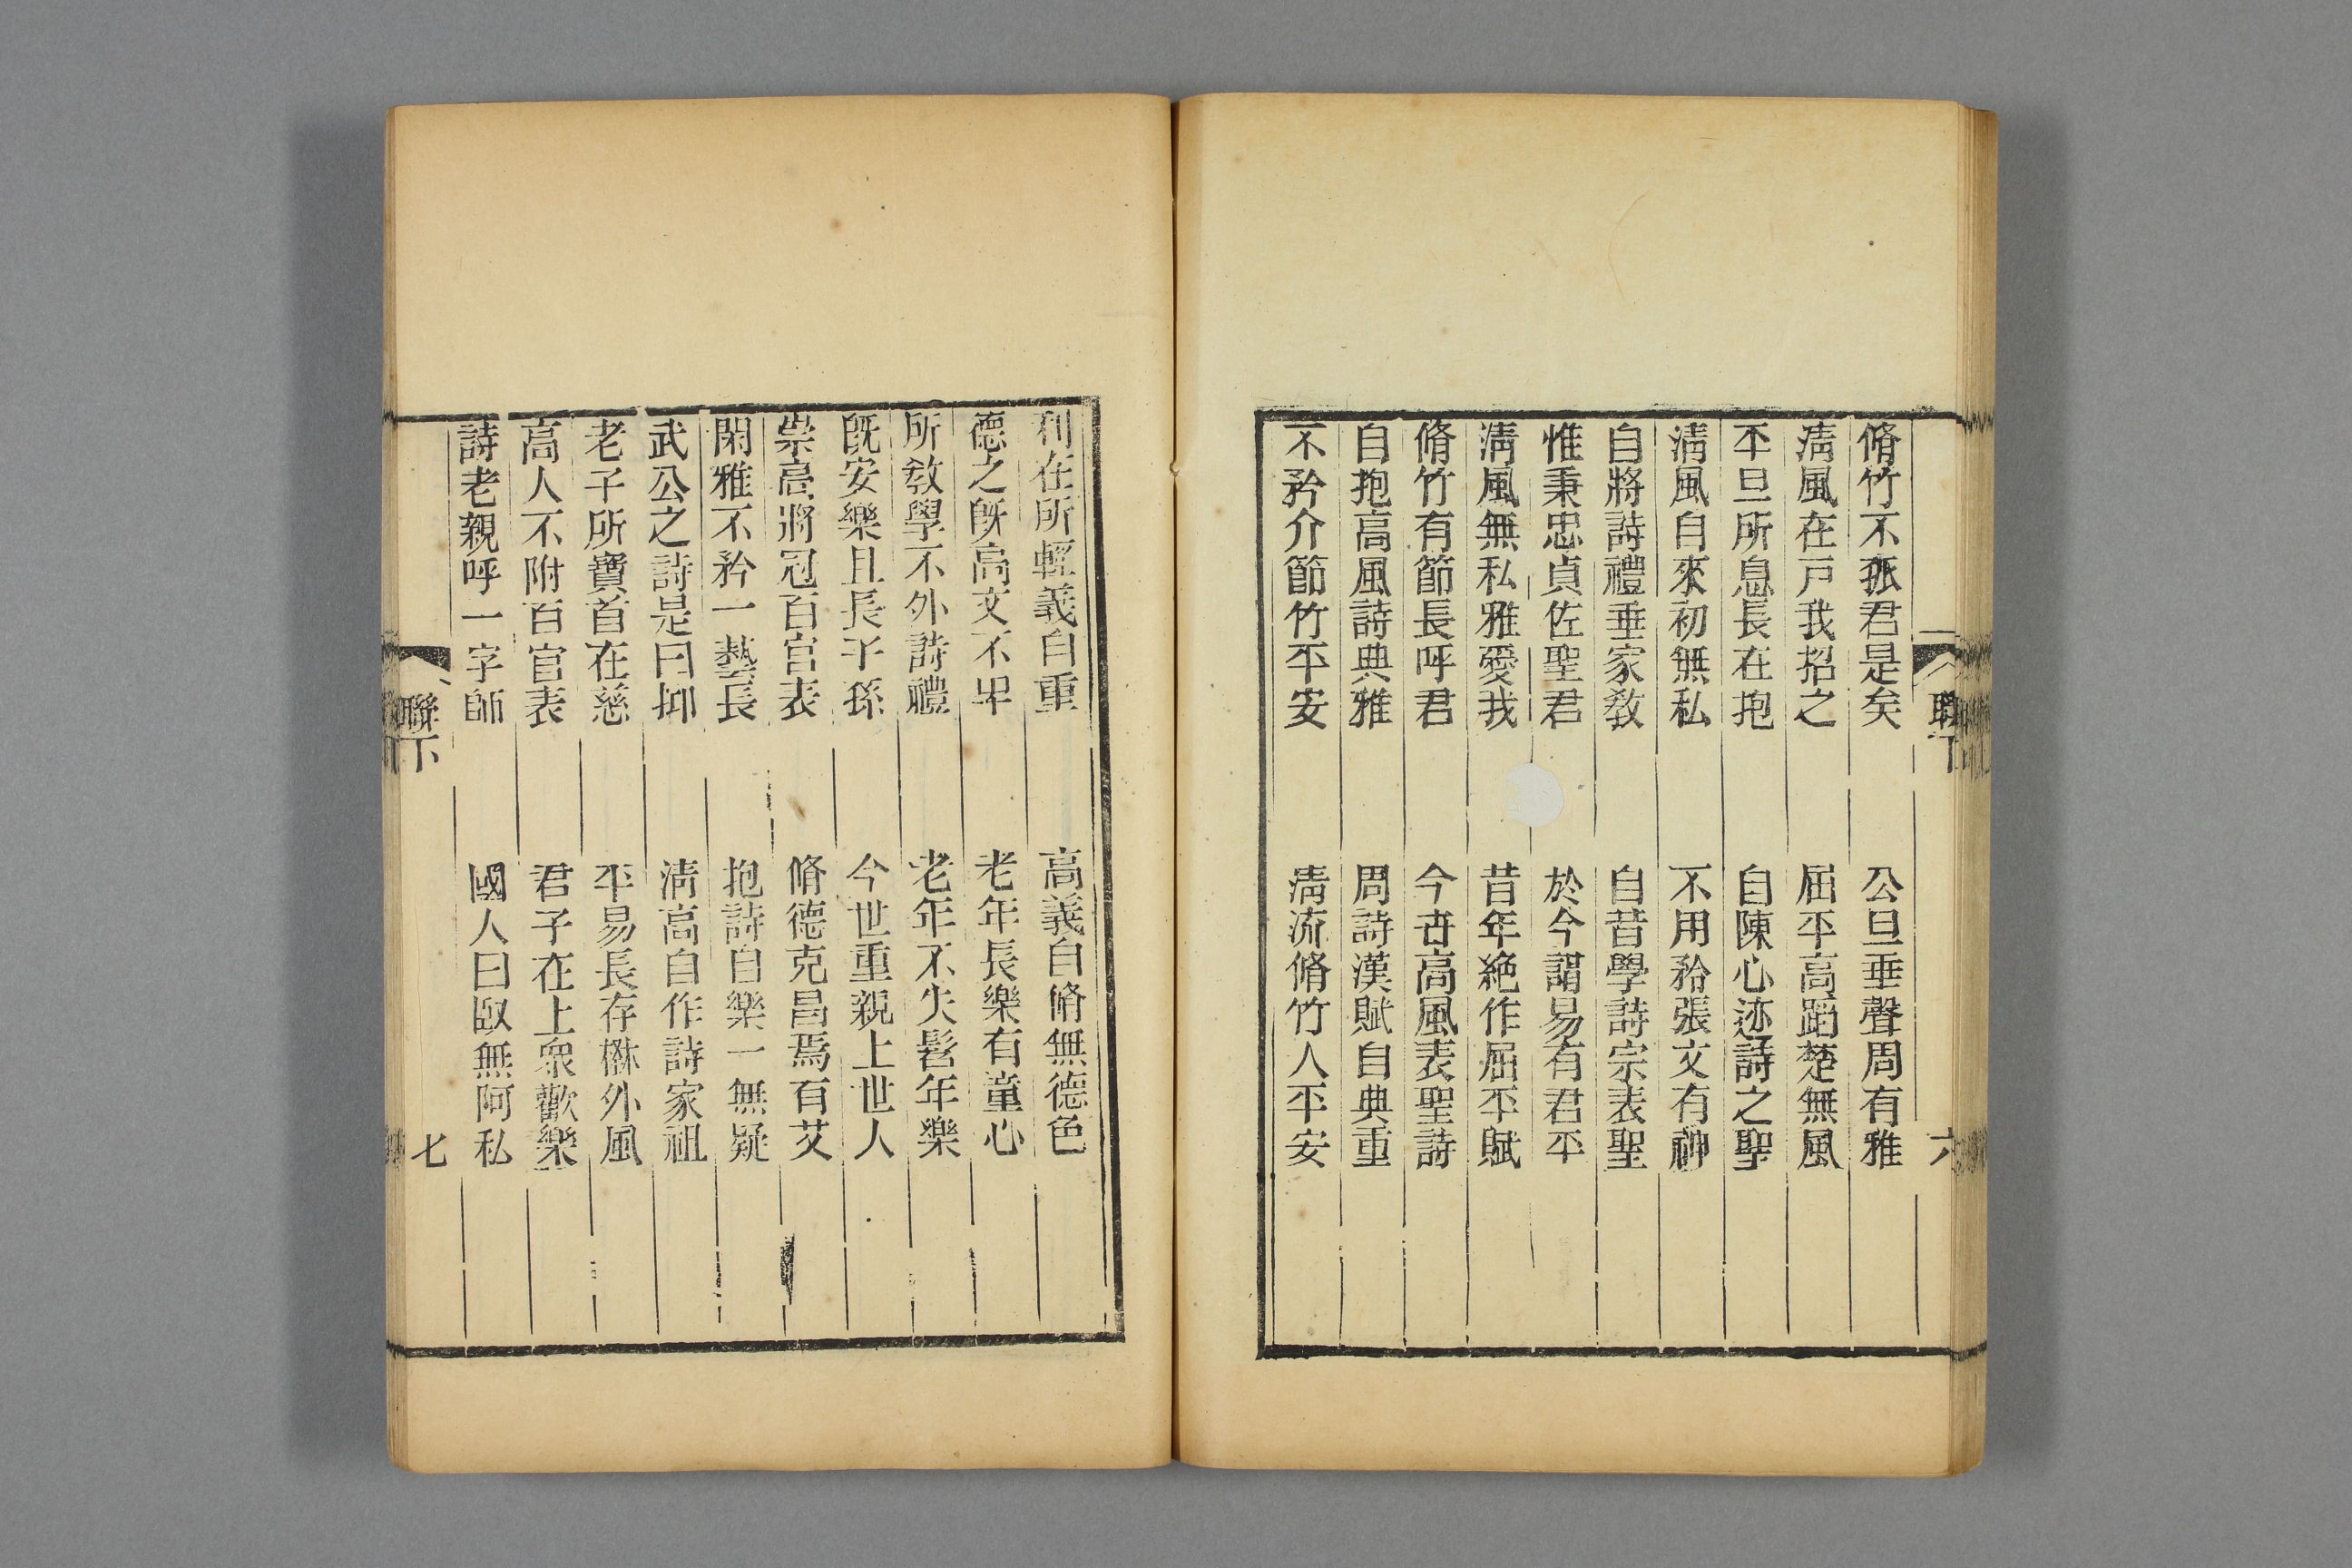 聯下
六
脩竹不孤君是矣　公旦垂聲周有雅
淸風在戸我招之　屈平高蹈楚無風
平旦所息長在抱　自陳心迹詩之聖
淸風自來初無私　不用矜張文有神
自將詩禮垂家敎　自昔學詩宗表聖
惟秉忠貞佐聖君　於今謂易有君平
淸風無私雅愛我　昔年絶作屈平賦
脩竹有節長呼君　今世高風表聖詩
自抱高風詩典雅　周詩漢賦自典重
不矜介節竹平安　淸流脩竹人平安
利在所輕義自重　高義自脩無德色
德之旣高文不卑　老年長樂有童心
所敎學不外詩禮　老年不失髫年樂
旣安樂且長子孫　今世重親上世人
崇高將冠百官表　脩德克昌焉有艾
閑雅不矜一藝長　抱詩自樂一無疑
武公之詩是曰抑　淸高自作詩家祖
老子所寶首在慈　平易長存楙外風
高人不附百官表　君子在上衆歡樂
詩老親呼一字師　國人曰㕁無阿私
聯下
七